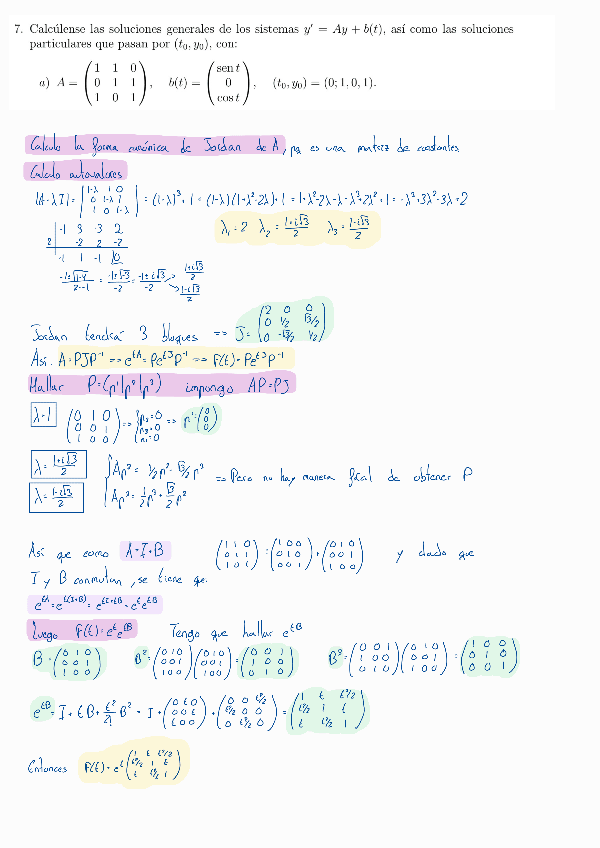 7. Calcúlense las soluciones generales de los sistemas y′ = Ay + b(t), así como las soluciones
particulares que pasan por (t₀, y₀), con:
a) A = (1 1 0; 0 1 1; 1 0 1), b(t) = (sen t; 0; cos t), (t₀, y₀) = (0; 1, 0, 1).
Calculo la forma canónica de Jordan de A, pq es una matriz de constantes
Calculo autovalores
|A-λI| = |1-λ 1 0; 0 1-λ 1; 1 0 1-λ| = (1-λ)³ + 1 = (1-λ)(1+λ²-2λ)+1 = 1+λ²-2λ-λ-λ³+2λ²+1 = -λ³+3λ²-3λ+2
λ₁=2 λ₂ = (1+i√3)/2 λ₃ = (1-i√3)/2
-1 3 -3 2
2 -2 2 -2
-1 1 -1 |0
(-1±√(1-4))/(2·-1) = (-1±√-3)/-2 = (-1±i√3)/-2 → (1+i√3)/2
(1-i√3)/2
Jordan tendrá 3 bloques => J = (2 0 0; 0 1/2 √3/2; 0 -√3/2 1/2)
Así. A=PJP⁻¹ => e^(tA) = Pe^(tJ)P⁻¹ => F(t) = Pe^(tJ)P⁻¹
Hallar P=(p¹|p²|p³) impongo AP=PJ
λ=1 (0 1 0; 0 0 1; 1 0 0) => {p₂=0 p₃=0 p₁=0 => p¹ = (0; 0; 0)
λ = (1+i√3)/2 {Ap² = 1/2 p² - √3/2 p³
λ = (1-i√3)/2 Ap³ = 1/2 p³ + √3/2 p² => Pero no hay manera fácil de obtener P
Así que como A=I+B (1 1 0; 0 1 1; 1 0 1) = (1 0 0; 0 1 0; 0 0 1) + (0 1 0; 0 0 1; 1 0 0) y dado que
I y B conmutan, se tiene que:
e^(tA) = e^(t(I+B)) = e^(tI+tB) = e^t e^(tB)
Luego F(t) = e^t e^(tB) Tengo que hallar e^(tB)
B = (0 1 0; 0 0 1; 1 0 0) B² = (0 1 0; 0 0 1; 1 0 0)(0 1 0; 0 0 1; 1 0 0) = (0 0 1; 1 0 0; 0 1 0) B³ = (0 0 1; 1 0 0; 0 1 0)(0 1 0; 0 0 1; 1 0 0) = (1 0 0; 0 1 0; 0 0 1)
e^(tB) = I + tB + t²/2! B² = I + (0 t 0; 0 0 t; t 0 0) + (0 0 t²/2; t²/2 0 0; 0 t²/2 0) = (1 t t²/2; t²/2 1 t; t t²/2 1)
Entonces F(t) = e^t (1 t t²/2; t²/2 1 t; t t²/2 1)